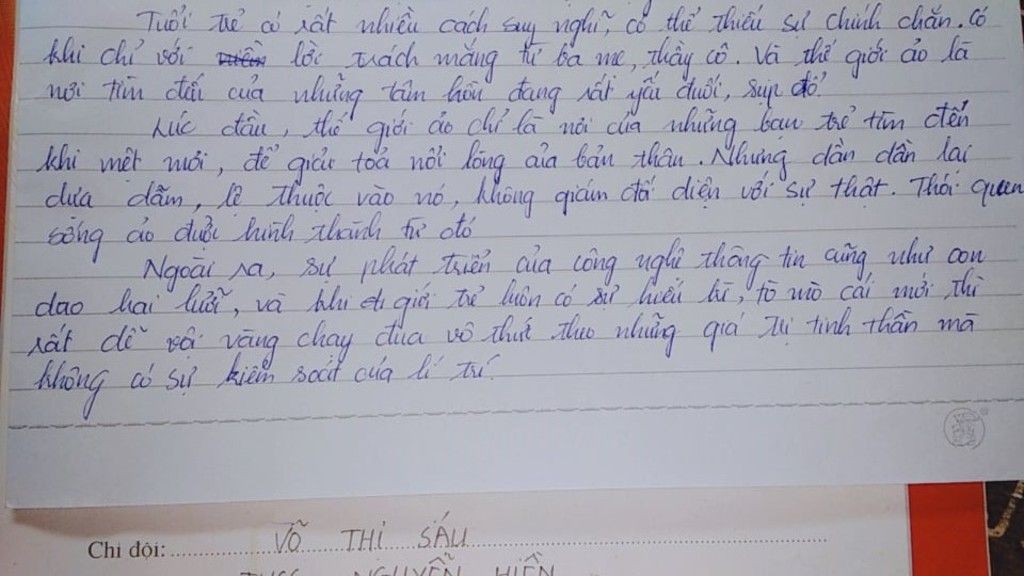 Tuổi trẻ có rất nhiều cách suy nghĩ, có thể thiếu sự chính chắn. Có
khi chỉ với lời trách mắng từ ba mẹ, thầy cô. Và thế giới ảo là
nơi tìm đến của những tâm hồn đang rất yếu đuối, sụp đổ.
Lúc đầu, thế giới ảo chỉ là nơi của những bạn trẻ tìm đến
khi mệt mỏi, để giải toả nỗi lòng của bản thân. Nhưng dần dần lại
dựa dẫm, lệ thuộc vào nó, không giám đối diện với sự thật. Thói quen
sống ảo được hình thành từ đó
Ngoài ra, sự phát triển của công nghệ thông tin cũng như con
dao hai lưỡi, và khi giới trẻ luôn có sự hiếu kì, tò mò cái mới thì
rất dễ vội vàng chạy đua vô thức theo những giá trị tinh thần mà
không có sự kiểm soát của lí trí.
Chi đội: VÕ THỊ SÁU
THCS NGUYỄN HIỀN